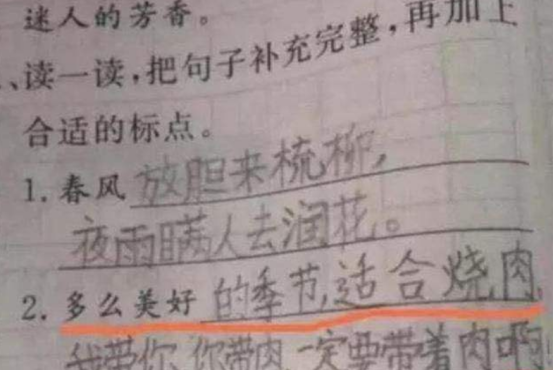 迷人的芳香。
、读一读，把句子补充完整，再加上
合适的标点。
1. 春风 放胆来梳柳，
夜雨瞒人去润花。
2. 多么美好 的季节，适合烧肉，
我带你，你带肉，一定要带着肉啊